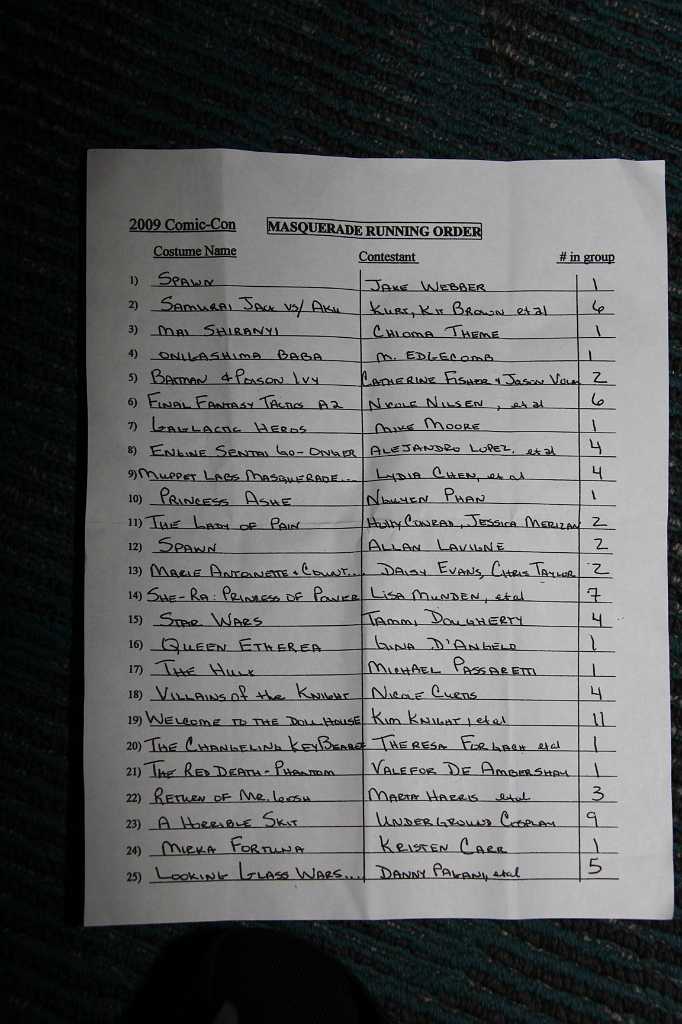 2009 Comic-Con MASQUERADE RUNNING ORDER
Costume Name Contestant # in group
1) SPAWN JAKE WEBBER 1
2) SAMURAI JACK VS/ AKU KURT, KIT BROWN et al 6
3) MAI SHIRANYI CHIOMA THEME 1
4) ONIKASHIMA BABA M. EDGECOMB 1
5) BATMAN & POISON IVY CATHERINE FISHER & JASON 2
6) FINAL FANTASY TACTICS A2 NICOLE NILSEN, et al 6
7) GALLACTIC HEROS MIKE MOORE 1
8) ENGINE SENTAI GO-ONGER ALEJANDRO LOPEZ, et al 4
9) MUPPET LABS MASQUERADE... LYDIA CHEN, et al 4
10) PRINCESS ASHE NGUYEN PHAN 1
11) THE LADY OF PAIN HOLLY CONRAD, JESSICA MERIZAN 2
12) SPAWN ALLAN LAVIGNE 2
13) MARIE ANTOINETTE & COUNT... DAISY EVANS, CHRIS TAYLOR 2
14) SHE-RA: PRINCESS OF POWER LISA MUNDEN, et al 7
15) STAR WARS TAMMI DOUGHERTY 4
16) QUEEN ETHEREA GINA D'ANGELO 1
17) THE HULK MICHAEL PASSARETTI 1
18) VILLAINS of the KNIGHT NICOLE CURTIS 4
19) WELCOME TO THE DOLL HOUSE KIM KNIGHT, et al 11
20) THE CHANGELING KEYBEARER THERESA FORGACH et al 1
21) THE RED DEATH - PHANTOM VALEFOR DE AMBERSHAM 1
22) RETURN OF MR. GOSH MARTA HARRIS et al 3
23) A HORRIBLE SKIT UNDERGROUND COSPLAY 9
24) MIRKA FORTUNA KRISTEN CARR 1
25) LOOKING GLASS WARS.... DANNY PAGANI, et al 5